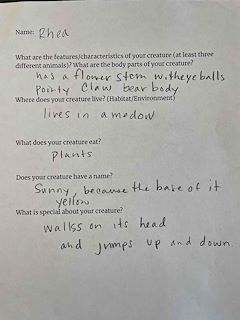 Name: Rhea
What are the features/characteristics of your creature (at least three
different animals)? What are the body parts of your creature?
has a flower stem with eyeballs
pointy claw bear body
Where does your creature live? (Habitat/Environment)
lives in a medow
What does your creature eat?
plants
Does your creature have a name?
Sunny, because the base of it
yellow
What is special about your creature?
walkss on its head
and jumps up and down